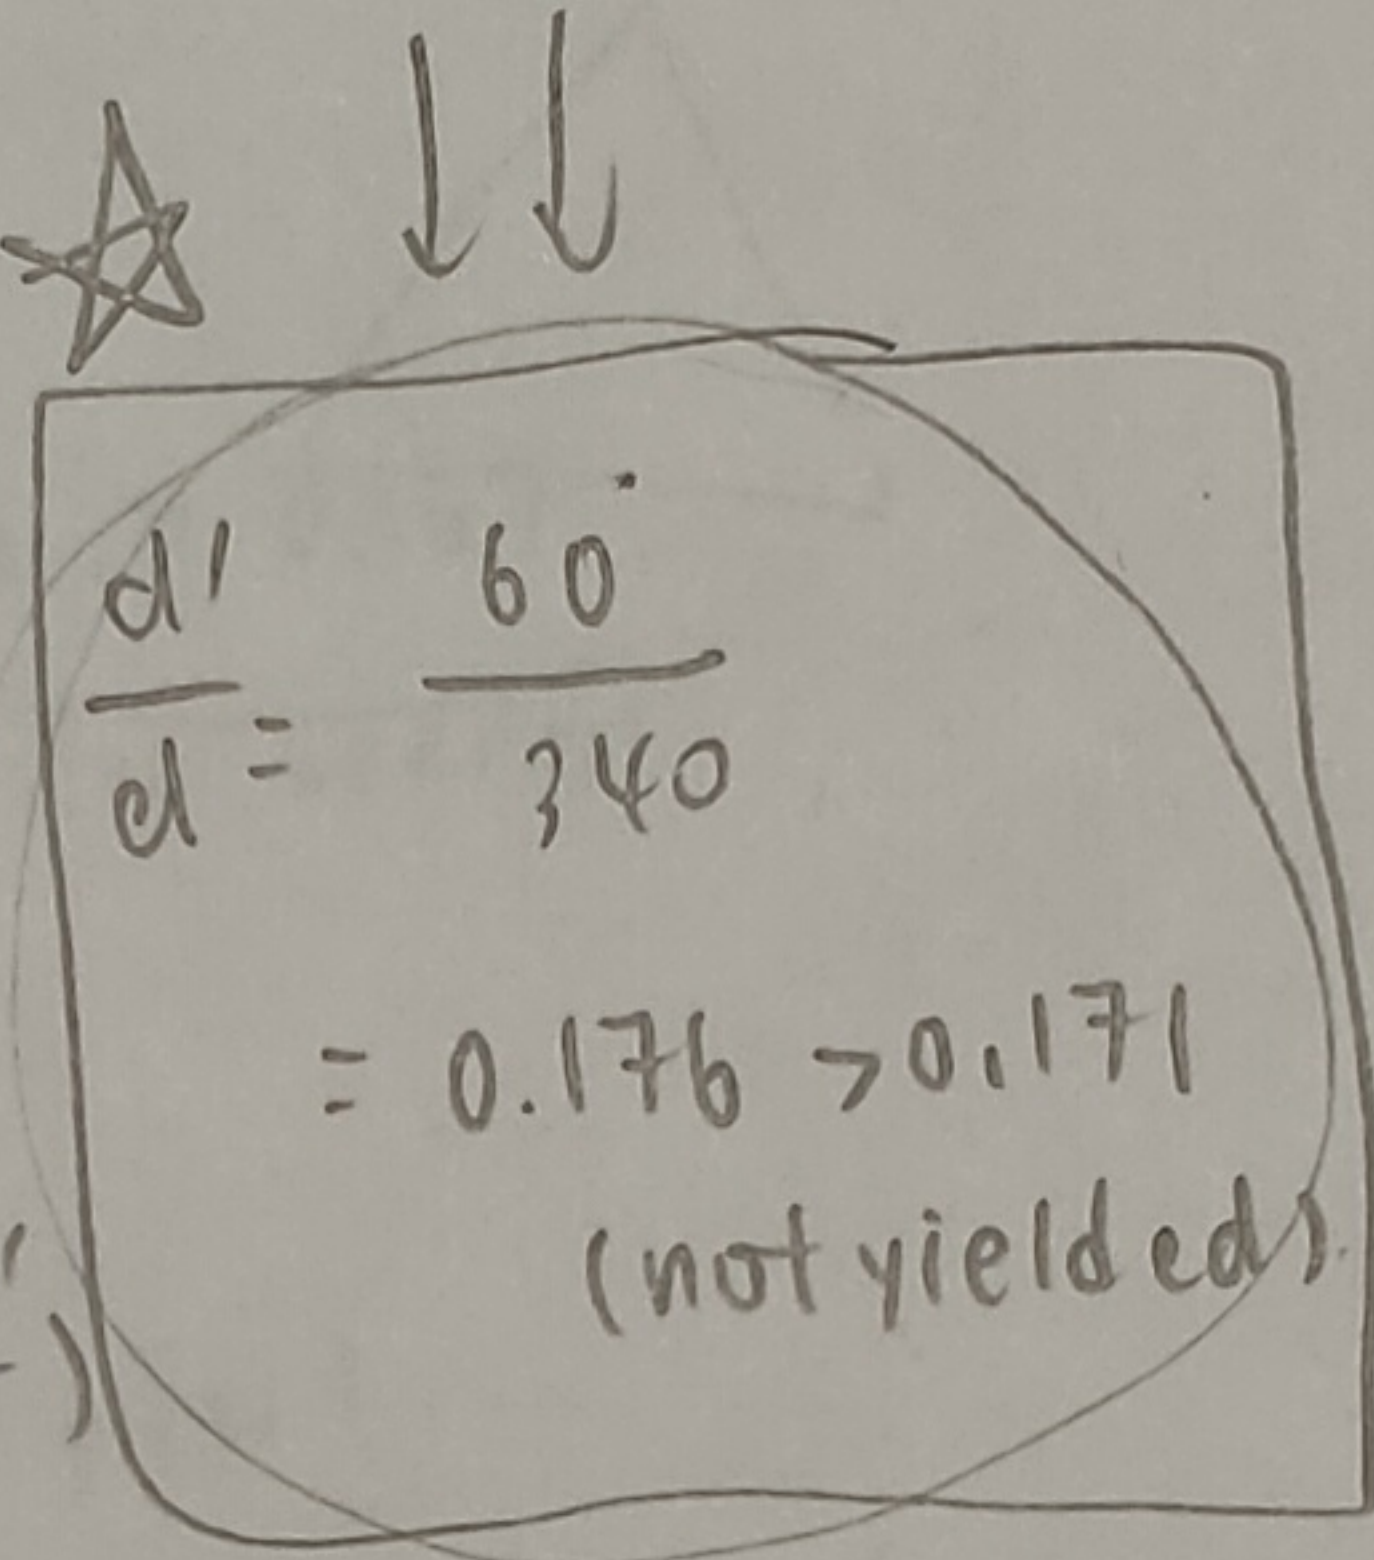 d' / d = 60 / 340
= 0.176 > 0.171
(not yielded)